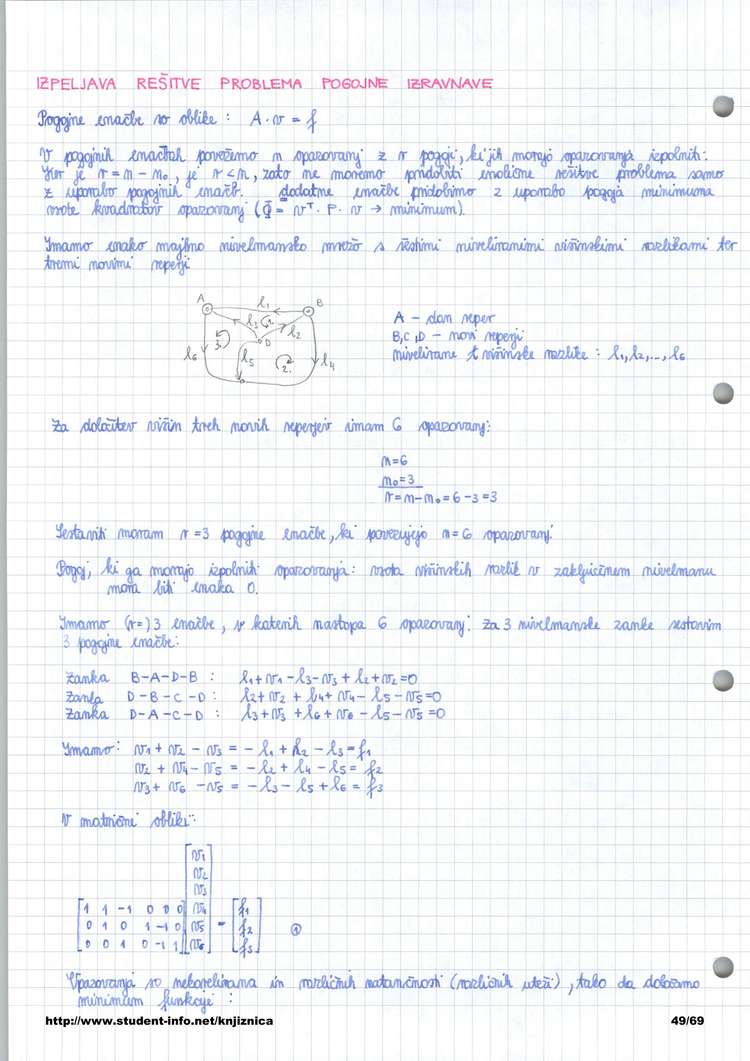 IZPELJAVA REŠITVE PROBLEMA POGOJNE IZRAVNAVE
Pogojne enačbe so oblike : A · v = f
V pogojnih enačbah povežemo n opazovanj z r pogoji, ki jih morajo opazovanja izpolniti.
Ker je r = n - n₀, je r < n, zato ne moremo pridobiti enolične rešitve problema samo
z uporabo pogojnih enačb. dodatne enačbe pridobimo z uporabo pogoja minimuma
vsote kvadratov opazovanj (Φ = vᵀ · P · v → minimum).
Imamo enako majhno nivelmansko mrežo s šestimi niveliranimi višinskimi razlikami ter
tremi novimi reperji
A l₁ B
l₃ 1. l₂
D
l₆ 3. l₅ 2. l₄
A - dan reper
B, C, D - novi reperji
nivelirane višinske razlike : l₁, l₂, ..., l₆
Za določitev višin treh novih reperjev imam 6 opazovanj:
n=6
n₀=3
r=n-n₀=6-3=3
Sestaviti moram r=3 pogojne enačbe, ki povezujejo n=6 opazovanj.
Pogoj, ki ga morajo izpolniti opazovanja: vsota višinskih razlik v zaključenem nivelmanu
mora biti enaka 0.
Imamo (r=) 3 enačbe, v katerih nastopa 6 opazovanj. Za 3 nivelmanske zanke sestavim
3 pogojne enačbe:
Zanka B-A-D-B : l₁+v₁-l₃-v₃+l₂+v₂=0
Zanka D-B-C-D : l₂+v₂+l₄+v₄-l₅-v₅=0
Zanka D-A-C-D : l₃+v₃+l₆+v₆-l₅-v₅=0
Imamo: v₁+v₂-v₃ = -l₁+l₂-l₃=f₁
v₂+v₄-v₅ = -l₂+l₄-l₅=f₂
v₃+v₆-v₅ = -l₃-l₅+l₆=f₃
V matrični obliki:
v₁
v₂
v₃
1 1 -1 0 0 0 v₄ f₁
0 1 0 1 -1 0 v₅ = f₂ 1
0 0 1 0 -1 1 v₆ f₃
Opazovanja so nekorelirana in različnih natančnosti (različnih uteži), tako da določimo
minimum funkcije :
http://www.student-info.net/knjiznica 49/69